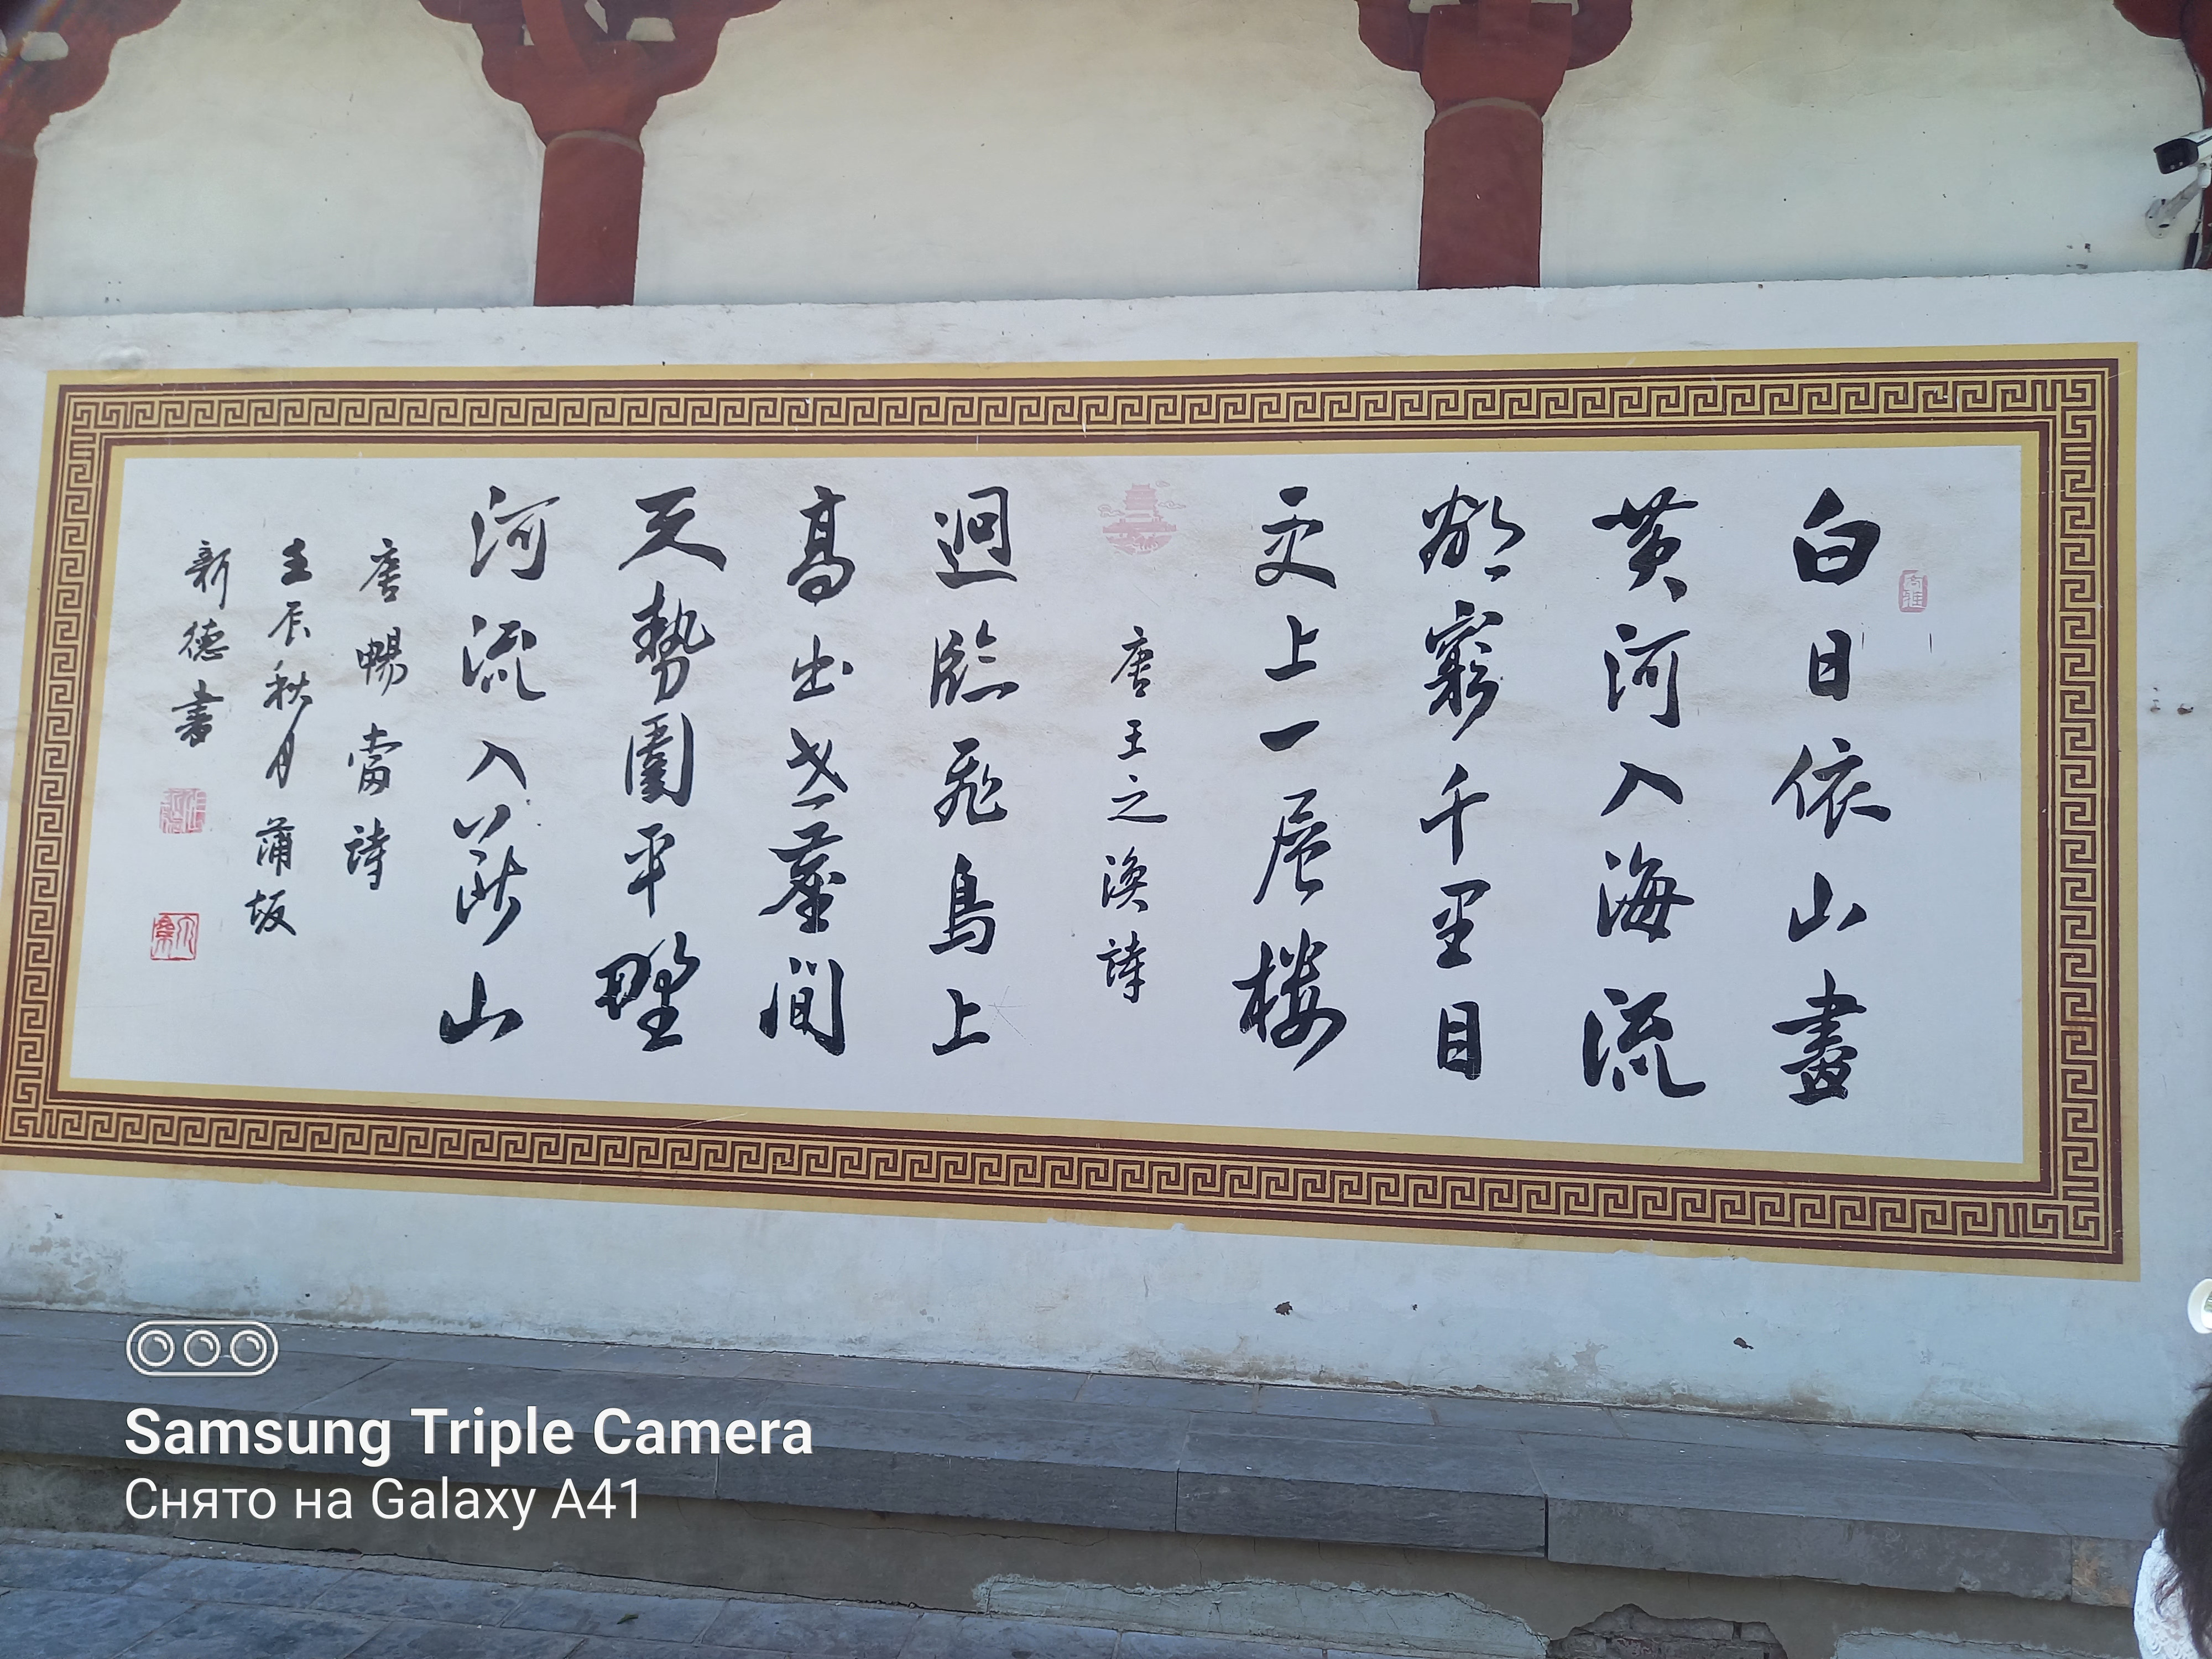 白日依山盡
黄河入海流
欲窮千里目
更上一层楼
唐王之渙詩
迥臨飛鳥上
高出世塵間
天勢圍平野
河流入斷山
唐暢當詩
壬辰秋月蒲坂
新德書
Samsung Triple Camera
Снято на Galaxy A41